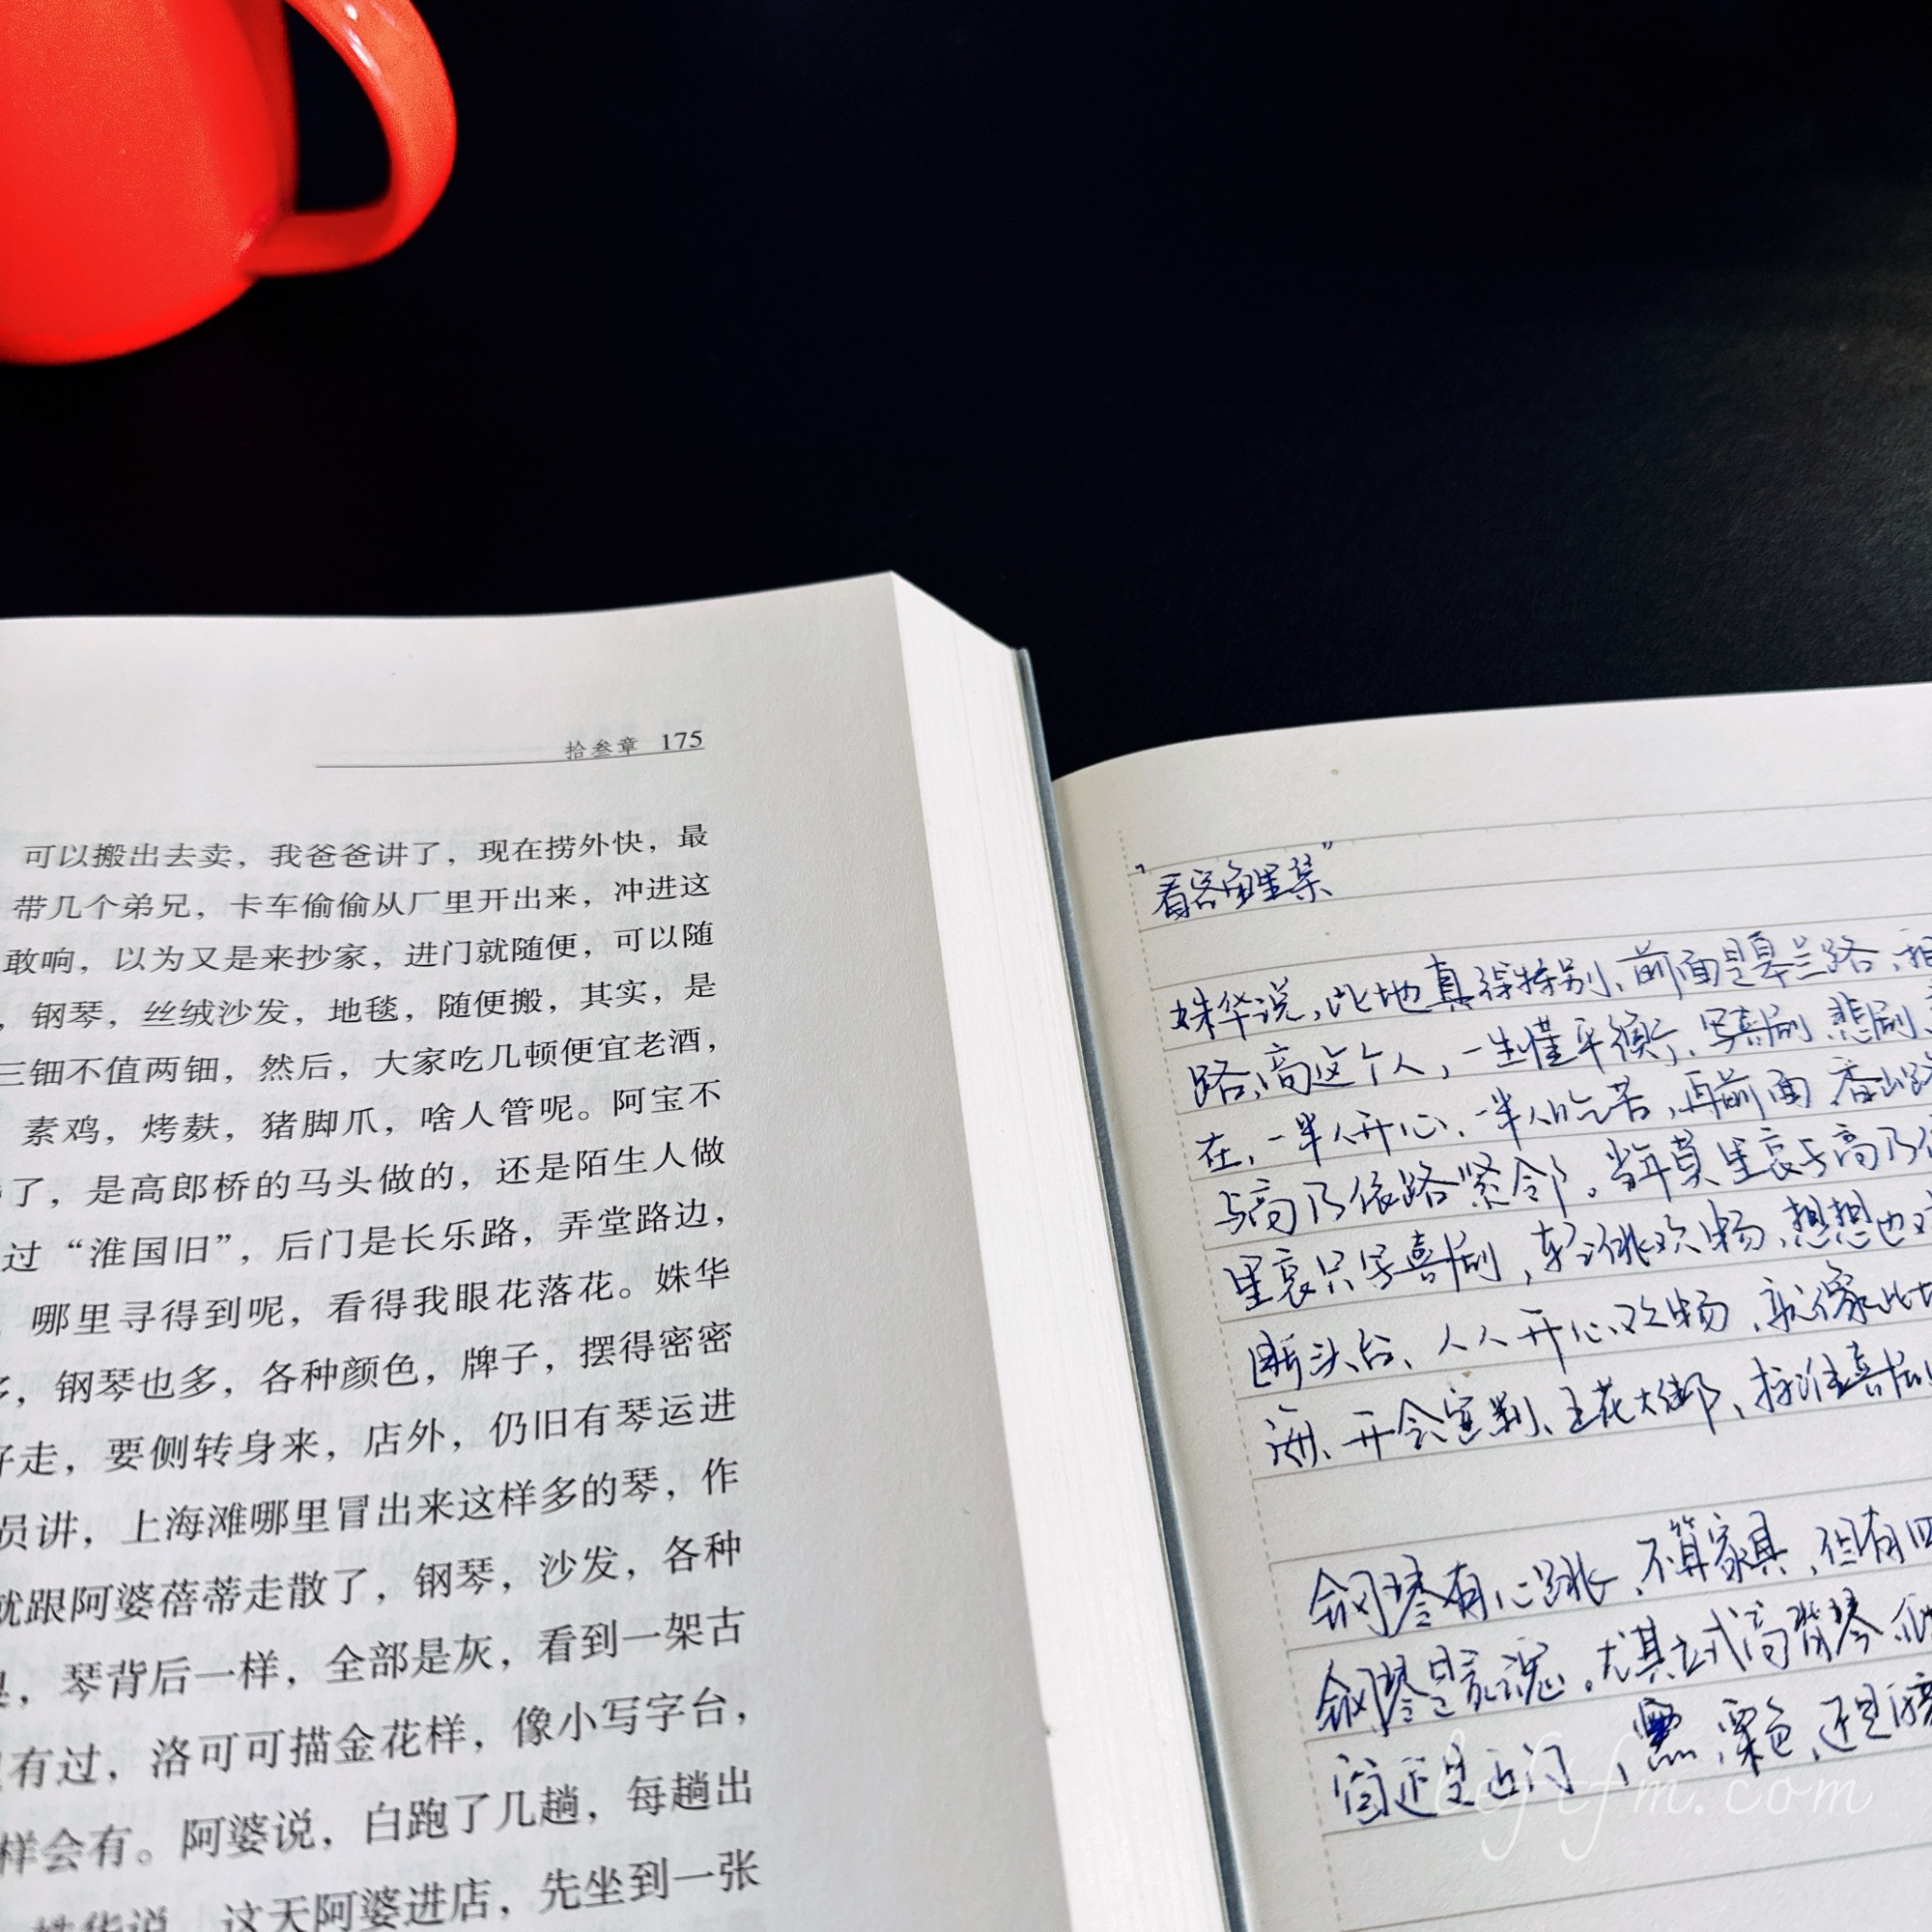 拾叁章 175
可以搬出去卖，我爸爸讲了，现在捞外快，最
带几个弟兄，卡车偷偷从厂里开出来，冲进这
敢响，以为又是来抄家，进门就随便，可以随
，钢琴，丝绒沙发，地毯，随便搬，其实，是
三钿不值两钿，然后，大家吃几顿便宜老酒，
素鸡，烤麸，猪脚爪，啥人管呢。阿宝不
了，是高郎桥的马头做的，还是陌生人做
过“淮国旧”，后门是长乐路，弄堂路边，
哪里寻得到呢，看得我眼花落花。姝华
，钢琴也多，各种颜色，牌子，摆得密密
好走，要侧转身来，店外，仍旧有琴运进
员讲，上海滩哪里冒出来这样多的琴，作
就跟阿婆蓓蒂走散了，钢琴，沙发，各种
，琴背后一样，全部是灰，看到一架古
有过，洛可可描金花样，像小写字台，
样会有。阿婆说，白跑了几趟，每趟出
姝华说，这天阿婆进店，先坐到一张
姝华说，此地真得特别，前面是皋兰路，
路，高这个人，一生懂平衡，写喜剧，悲剧，
在，一半人开心，一半人吃苦，再前面，香山路
与高乃依路紧邻。当年莫里哀与高乃依
里哀只写喜剧，轻佻欢畅，想想也对
断头台，人人开心欢畅，就像此地
海，开会宣判，五花大绑，标准喜剧
钢琴有心跳，不算家具，但有四
钢琴是灵魂。尤其立式高背琴，
窗还是近门，黑，栗色，还是
leftfm.com